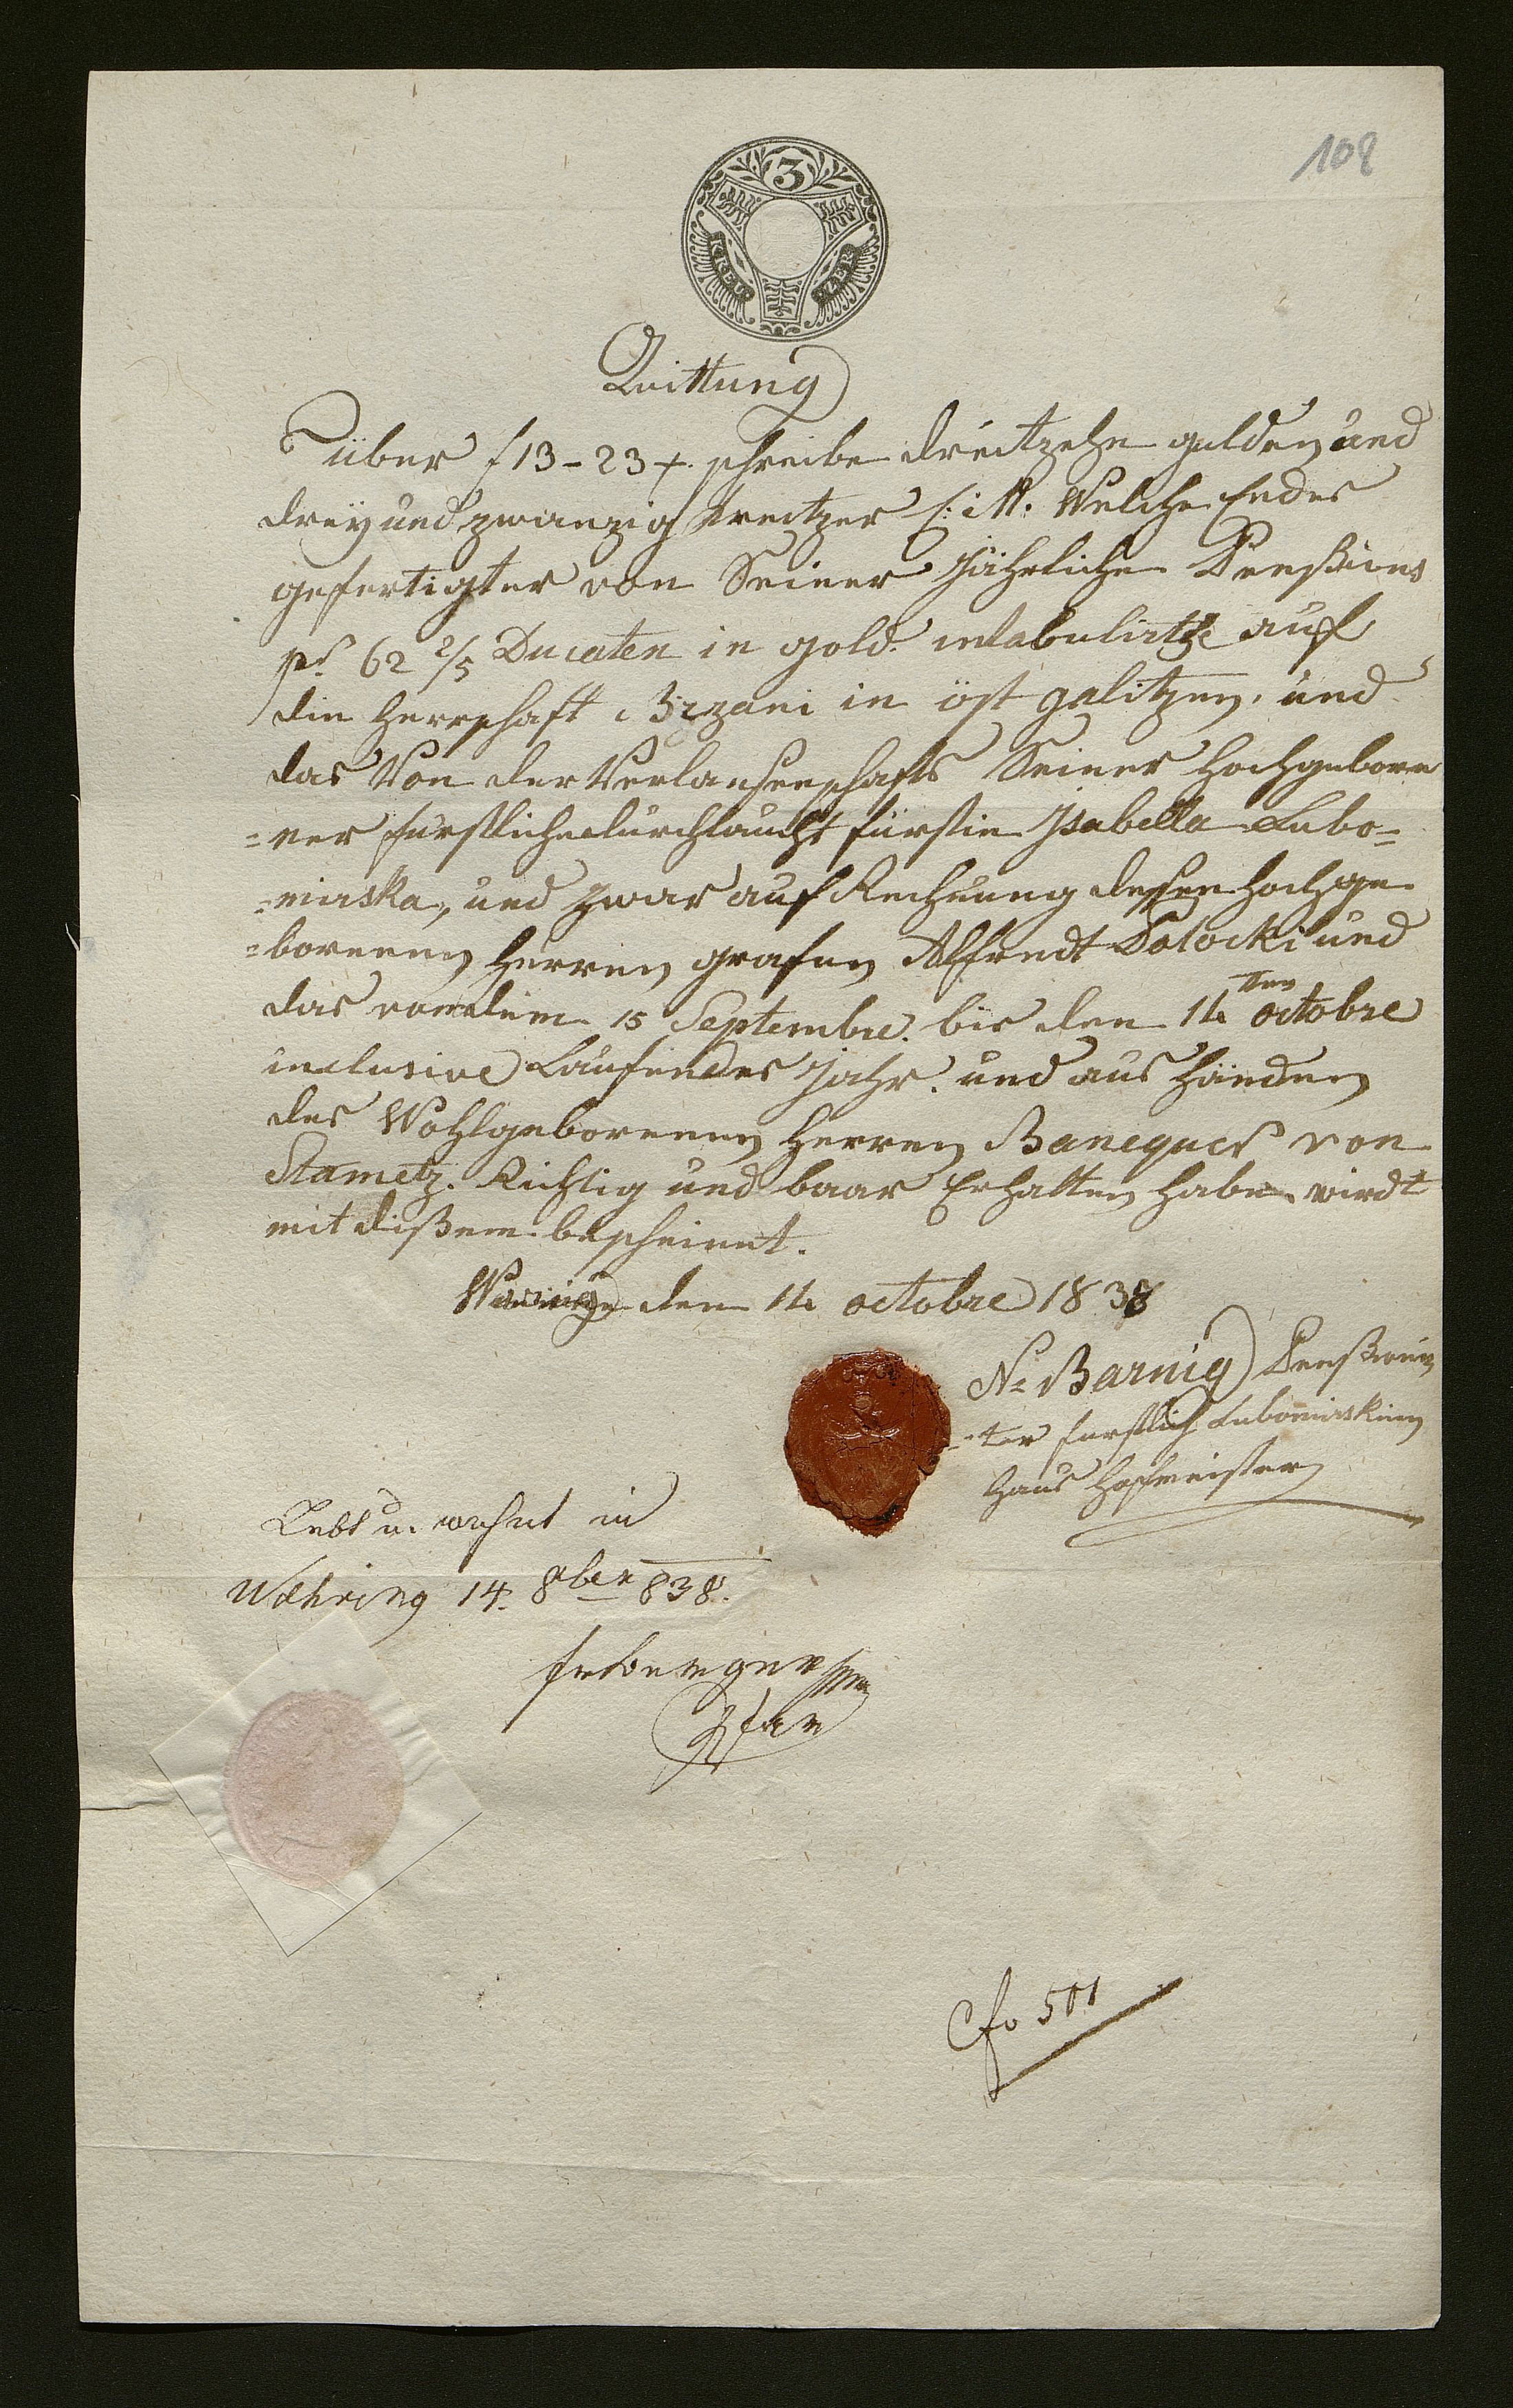 108
3
KREU ZER
Quittung
über f 13-23 x. schreibe dreitzehn gulden und
dreÿ und zwanzig kreitzer C: M: Welche Endes
gefertigter von Seiner Jährliche Penßions
pr 62 2/5 Ducaten in gold. intabulirtze auf
die Herrschaft Brzani in öst galitzen, und
das Von der Verlasenschafts Seiner Hochgebore
=ner fürstliche durchlaucht fürstin Jsabella Lubo=
=mirska, und zwar auf Rechnung dessen Hochge
=borenen Herren grafen Alfredt Potocki und
das von dem 15 Septembre. bis den 14ten octobre
inclusive Laufendes Jahr. und aus Händen
des Wohlgeborenen Herren Banequer von
Stametz. Richtig und baar Erhalten habe. wirdt
mit dißem bescheinet.
den 14 octobre 1838
N: Barnig Penßioni
=ter furstlich Lubomirskien
Haus Hofmeister
Lebt u. wohnt in
Wæhring 14. 8ber 838.
Pfar
Cfo 501